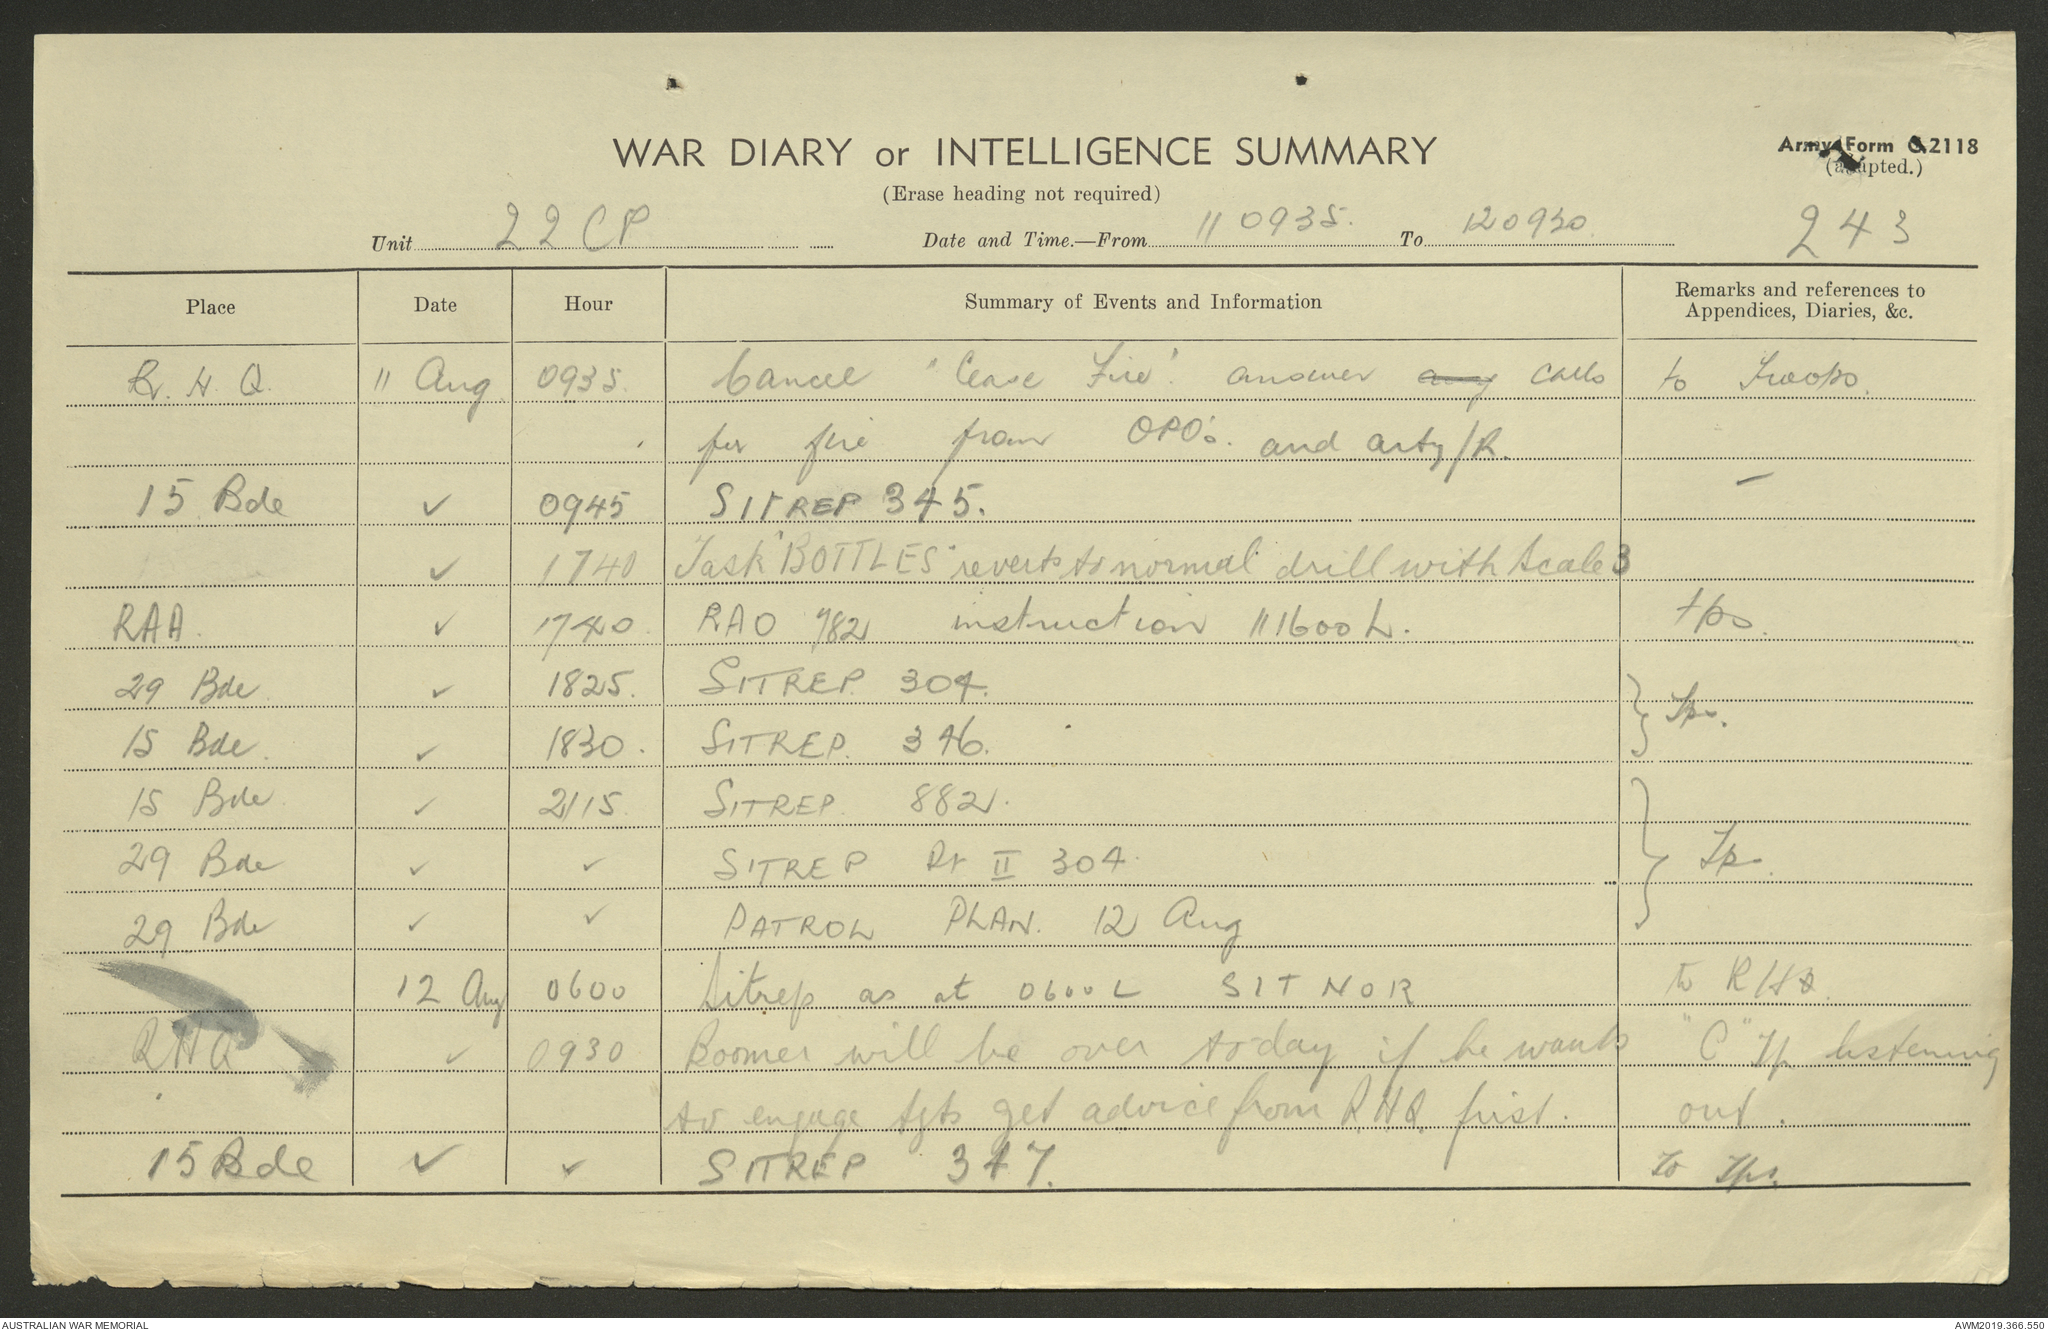 WAR DIARY or INTELLIGENCE SUMMARY
Army Form C.2118
(Erase heading not required)
(adapted.)
Unit 22 CP Date and Time.—From 11 0935. To 120930
243
Place Date Hour Summary of Events and Information Remarks and references to Appendices, Diaries, &c.
R. H. Q. 11 Aug 0935. Cancel "Cease Fire". answer any calls to Troops.
for fire from OPO's. and arty/R.
15 Bde ✓ 0945 SITREP 345. –
✓ 1740 Task "BOTTLES" reverts to normal drill with Scale 3
RAA. ✓ 1740 RAO 782 instruction 111600 L. tps.
29 Bde ✓ 1825. SITREP 304.
15 Bde. ✓ 1830. SITREP. 346. } Tps.
15 Bde ✓ 2115. SITREP. 882.
29 Bde ✓ ✓ SITREP Pt II 304. } Tps.
29 Bde ✓ ✓ PATROL PLAN. 12 Aug
12 Aug 0600 Sitrep as at 0600L SITNOR to RHQ.
RHQ ✓ 0930 Boomer will be over to-day if he wants "C" Tp listening
to engage tgts get advice from R.H.Q. first. out.
15 Bde ✓ ✓ SITREP 347. to Tps.
AUSTRALIAN WAR MEMORIAL
AWM2019.366.550